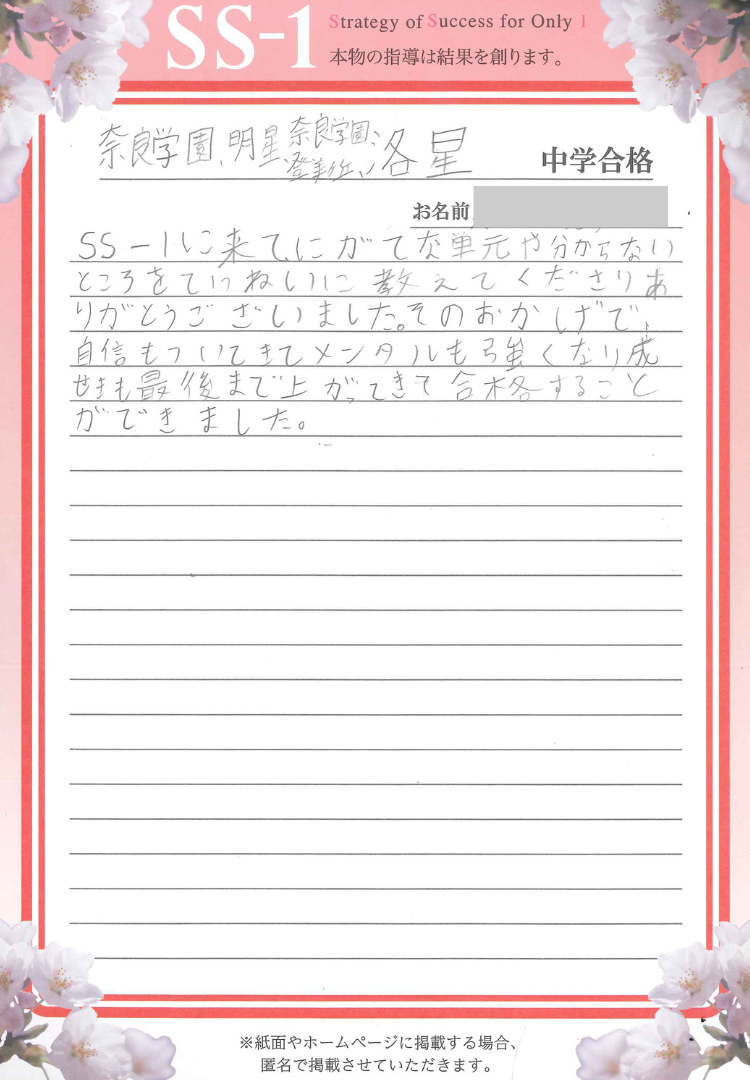 SS-1
Strategy of Success for Only 1
本物の指導は結果を創ります。
奈良学園、明星、奈良学園登美ヶ丘、洛星 中学合格
お名前
SS-1に来て、にがてな単元や分からない
ところをていねいに教えてくださりあ
りがとうございました。そのおかげで、
自信もついてきてメンタルも強くなり成
せきも最後まで上がってきて合格すること
ができました。
※紙面やホームページに掲載する場合、
匿名で掲載させていただきます。